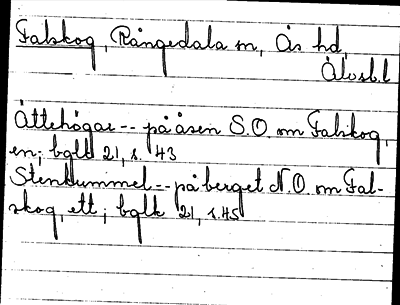 Falskog, Rångedala sn, Ås hd,
Älvsb.l
Ättehögar -- på åsen S.O. om Falskog,
en; bglk 21, s. 43
Stenkummel -- på berget N.O. om Fal-
skog, ett; bglk 21, s. 45